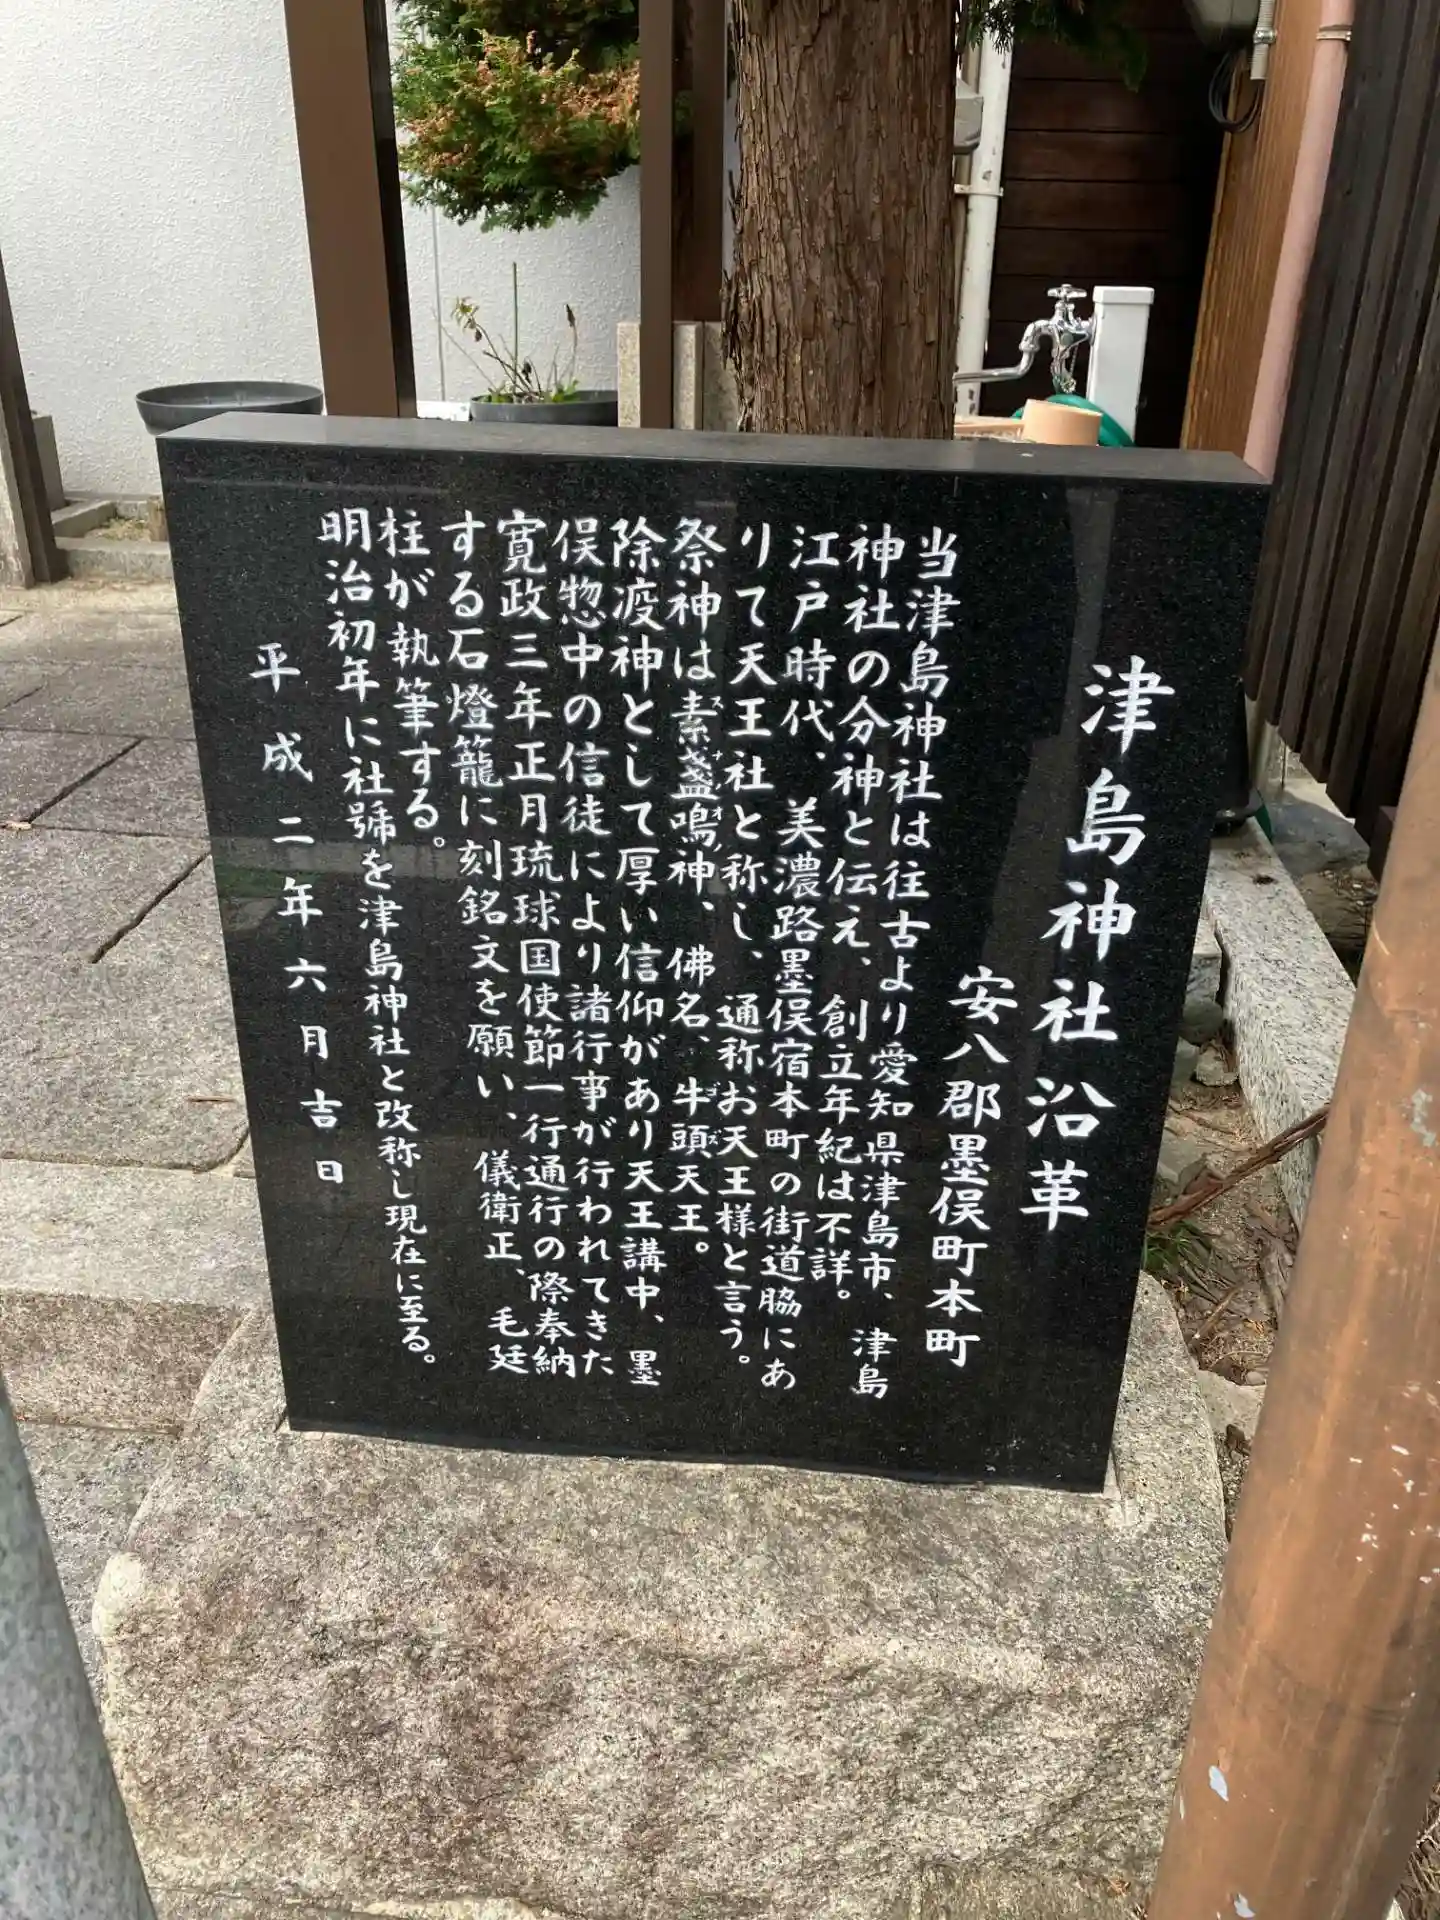 津島神社沿革
安八郡墨俣町本町
当津島神社は往古より愛知県津島市、津島
神社の分神と伝え、創立年紀は不詳。
江戸時代、美濃路墨俣宿本町の街道脇にあ
りて天王社と称し、通称お天王様と言う。
祭神は素盞鳴神、佛名、牛頭天王。
除疫神として厚い信仰があり天王講中、墨
俣惣中の信徒により諸行事が行われてきた
寛政三年正月琉球国使節一行通行の際奉納
する石燈籠に刻銘文を願い、儀衛正、毛廷
柱が執筆する。
明治初年に社號を津島神社と改称し現在に至る。
平成二年六月吉日